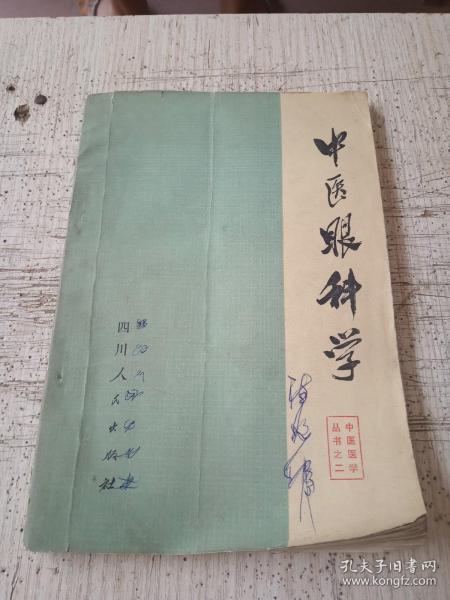 中医眼科学
中医医学
丛书之二
四川人民出版社
孔夫子旧书网
www.kongfz.com